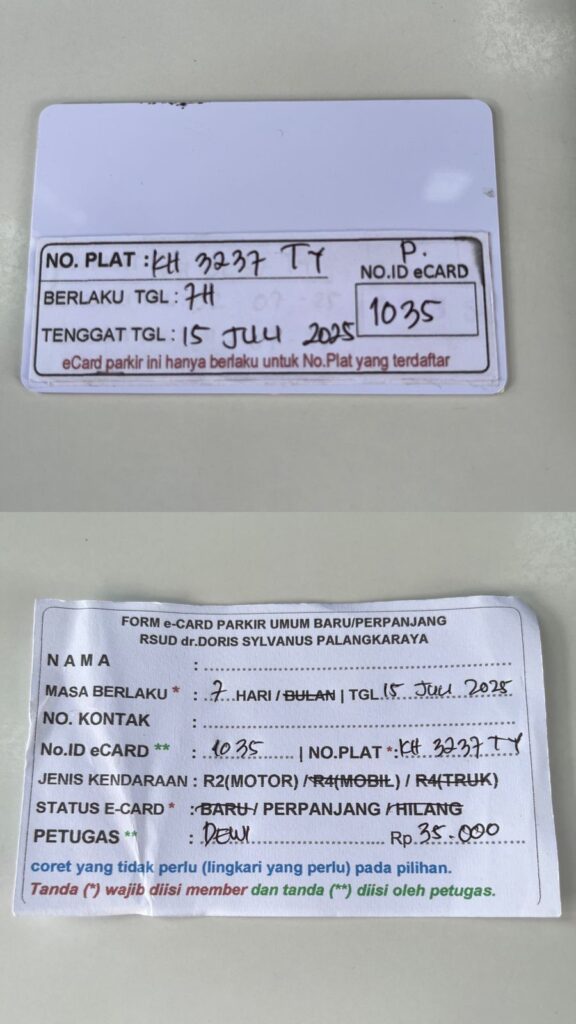 NO. PLAT : KH 3237 TY
P.
NO.ID eCARD
BERLAKU TGL : 7H
1035
TENGGAT TGL : 15 JULI 2025
eCard parkir ini hanya berlaku untuk No.Plat yang terdaftar
FORM e-CARD PARKIR UMUM BARU/PERPANJANG
RSUD dr.DORIS SYLVANUS PALANGKARAYA
NAMA :
MASA BERLAKU * : 7 HARI / BULAN | TGL 15 JULI 2025
NO. KONTAK :
No.ID eCARD ** : 1035 | NO.PLAT *: KH 3237 TY
JENIS KENDARAAN : R2(MOTOR) / R4(MOBIL) / R4(TRUK)
STATUS E-CARD * : BARU / PERPANJANG / HILANG
PETUGAS ** : DEWI Rp 35.000
coret yang tidak perlu (lingkari yang perlu) pada pilihan.
Tanda (*) wajib diisi member dan tanda (**) diisi oleh petugas.